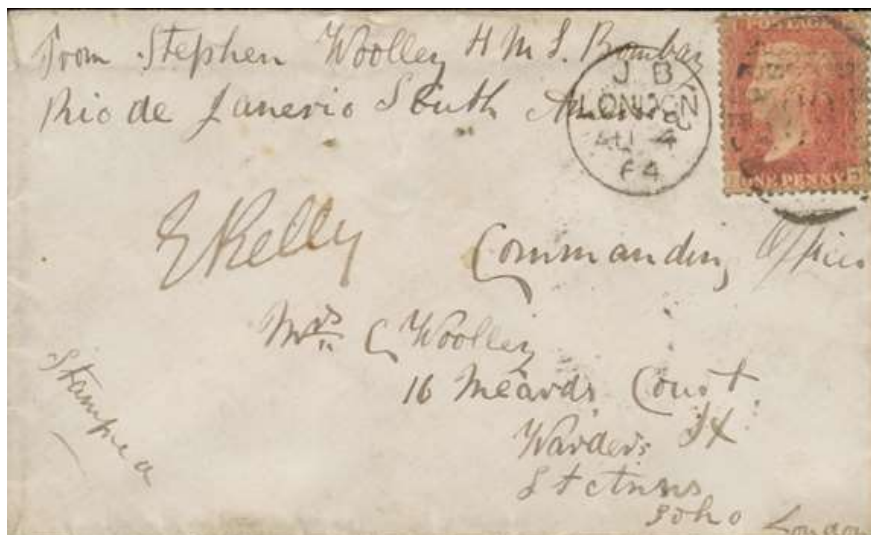 From Stephen Woolley H M S. Bombay
Rio de Janerio South
J B
LONDON
AU 4
64
POSTAGE
ONE PENNY
E Kelly
Commanding Officer
Mrs C Woolley
16 Meards Court
Warders St
St Anns
Soho London
Stamped